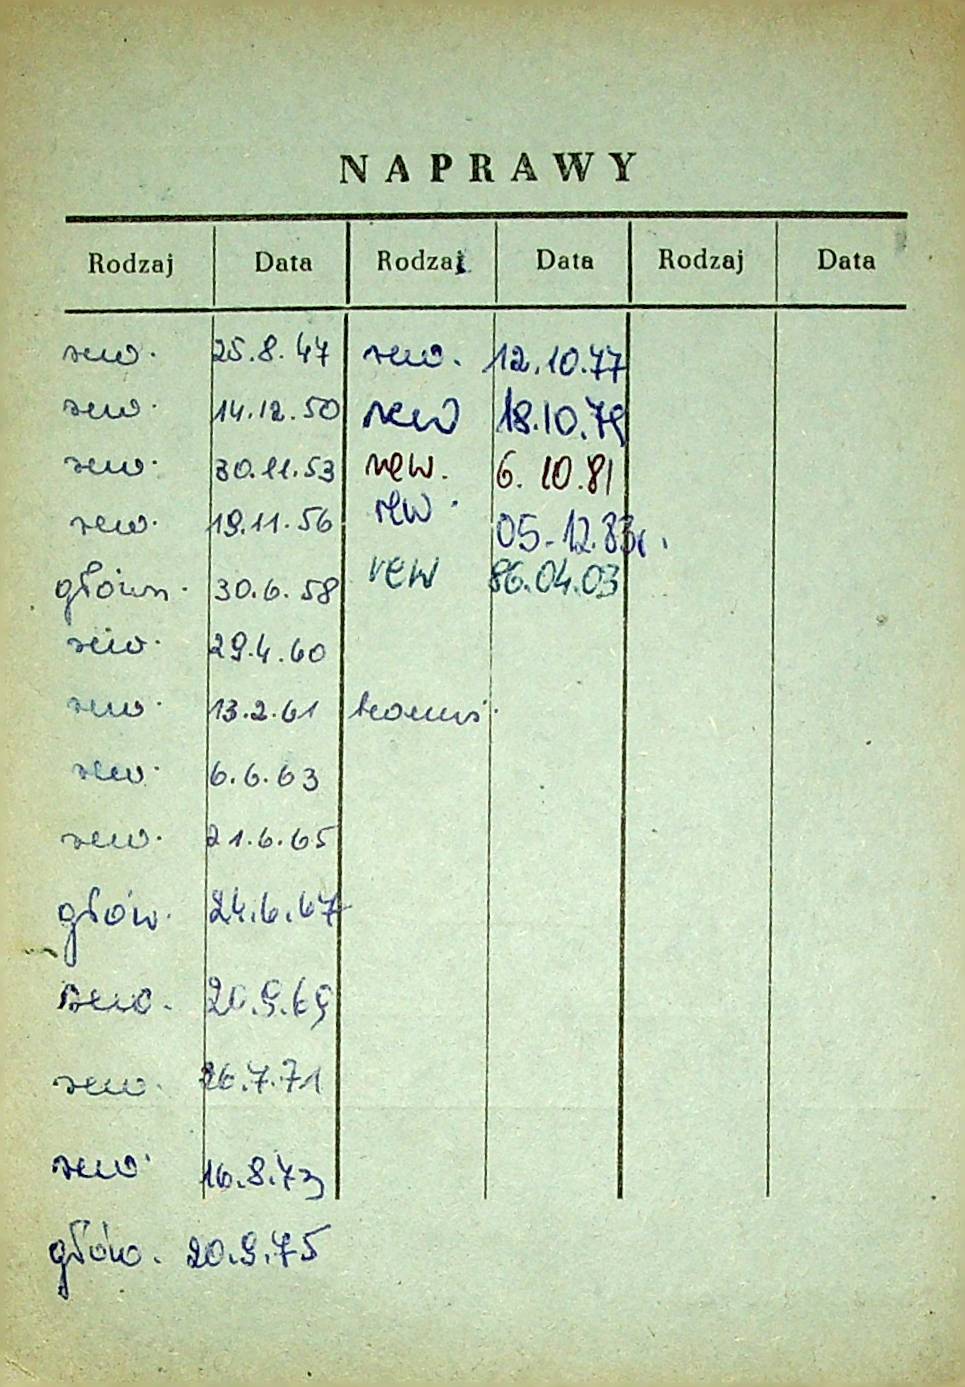 NAPRAWY
Rodzaj Data Rodzaj Data Rodzaj Data
rew. 25.8.47 rew. 12.10.77
rew. 14.12.50 rew 18.10.79
rew. 30.11.53 rew. 6.10.81
rew. 19.11.56 rew. 05-12.83r.
główn. 30.6.58 rew 86.04.03
rew. 29.4.60
rew. 13.2.61
rew. 6.6.63
rew. 21.6.65
głów. 24.6.67
rew. 20.9.69
rew. 26.7.71
rew. 16.8.73
głów. 20.9.75